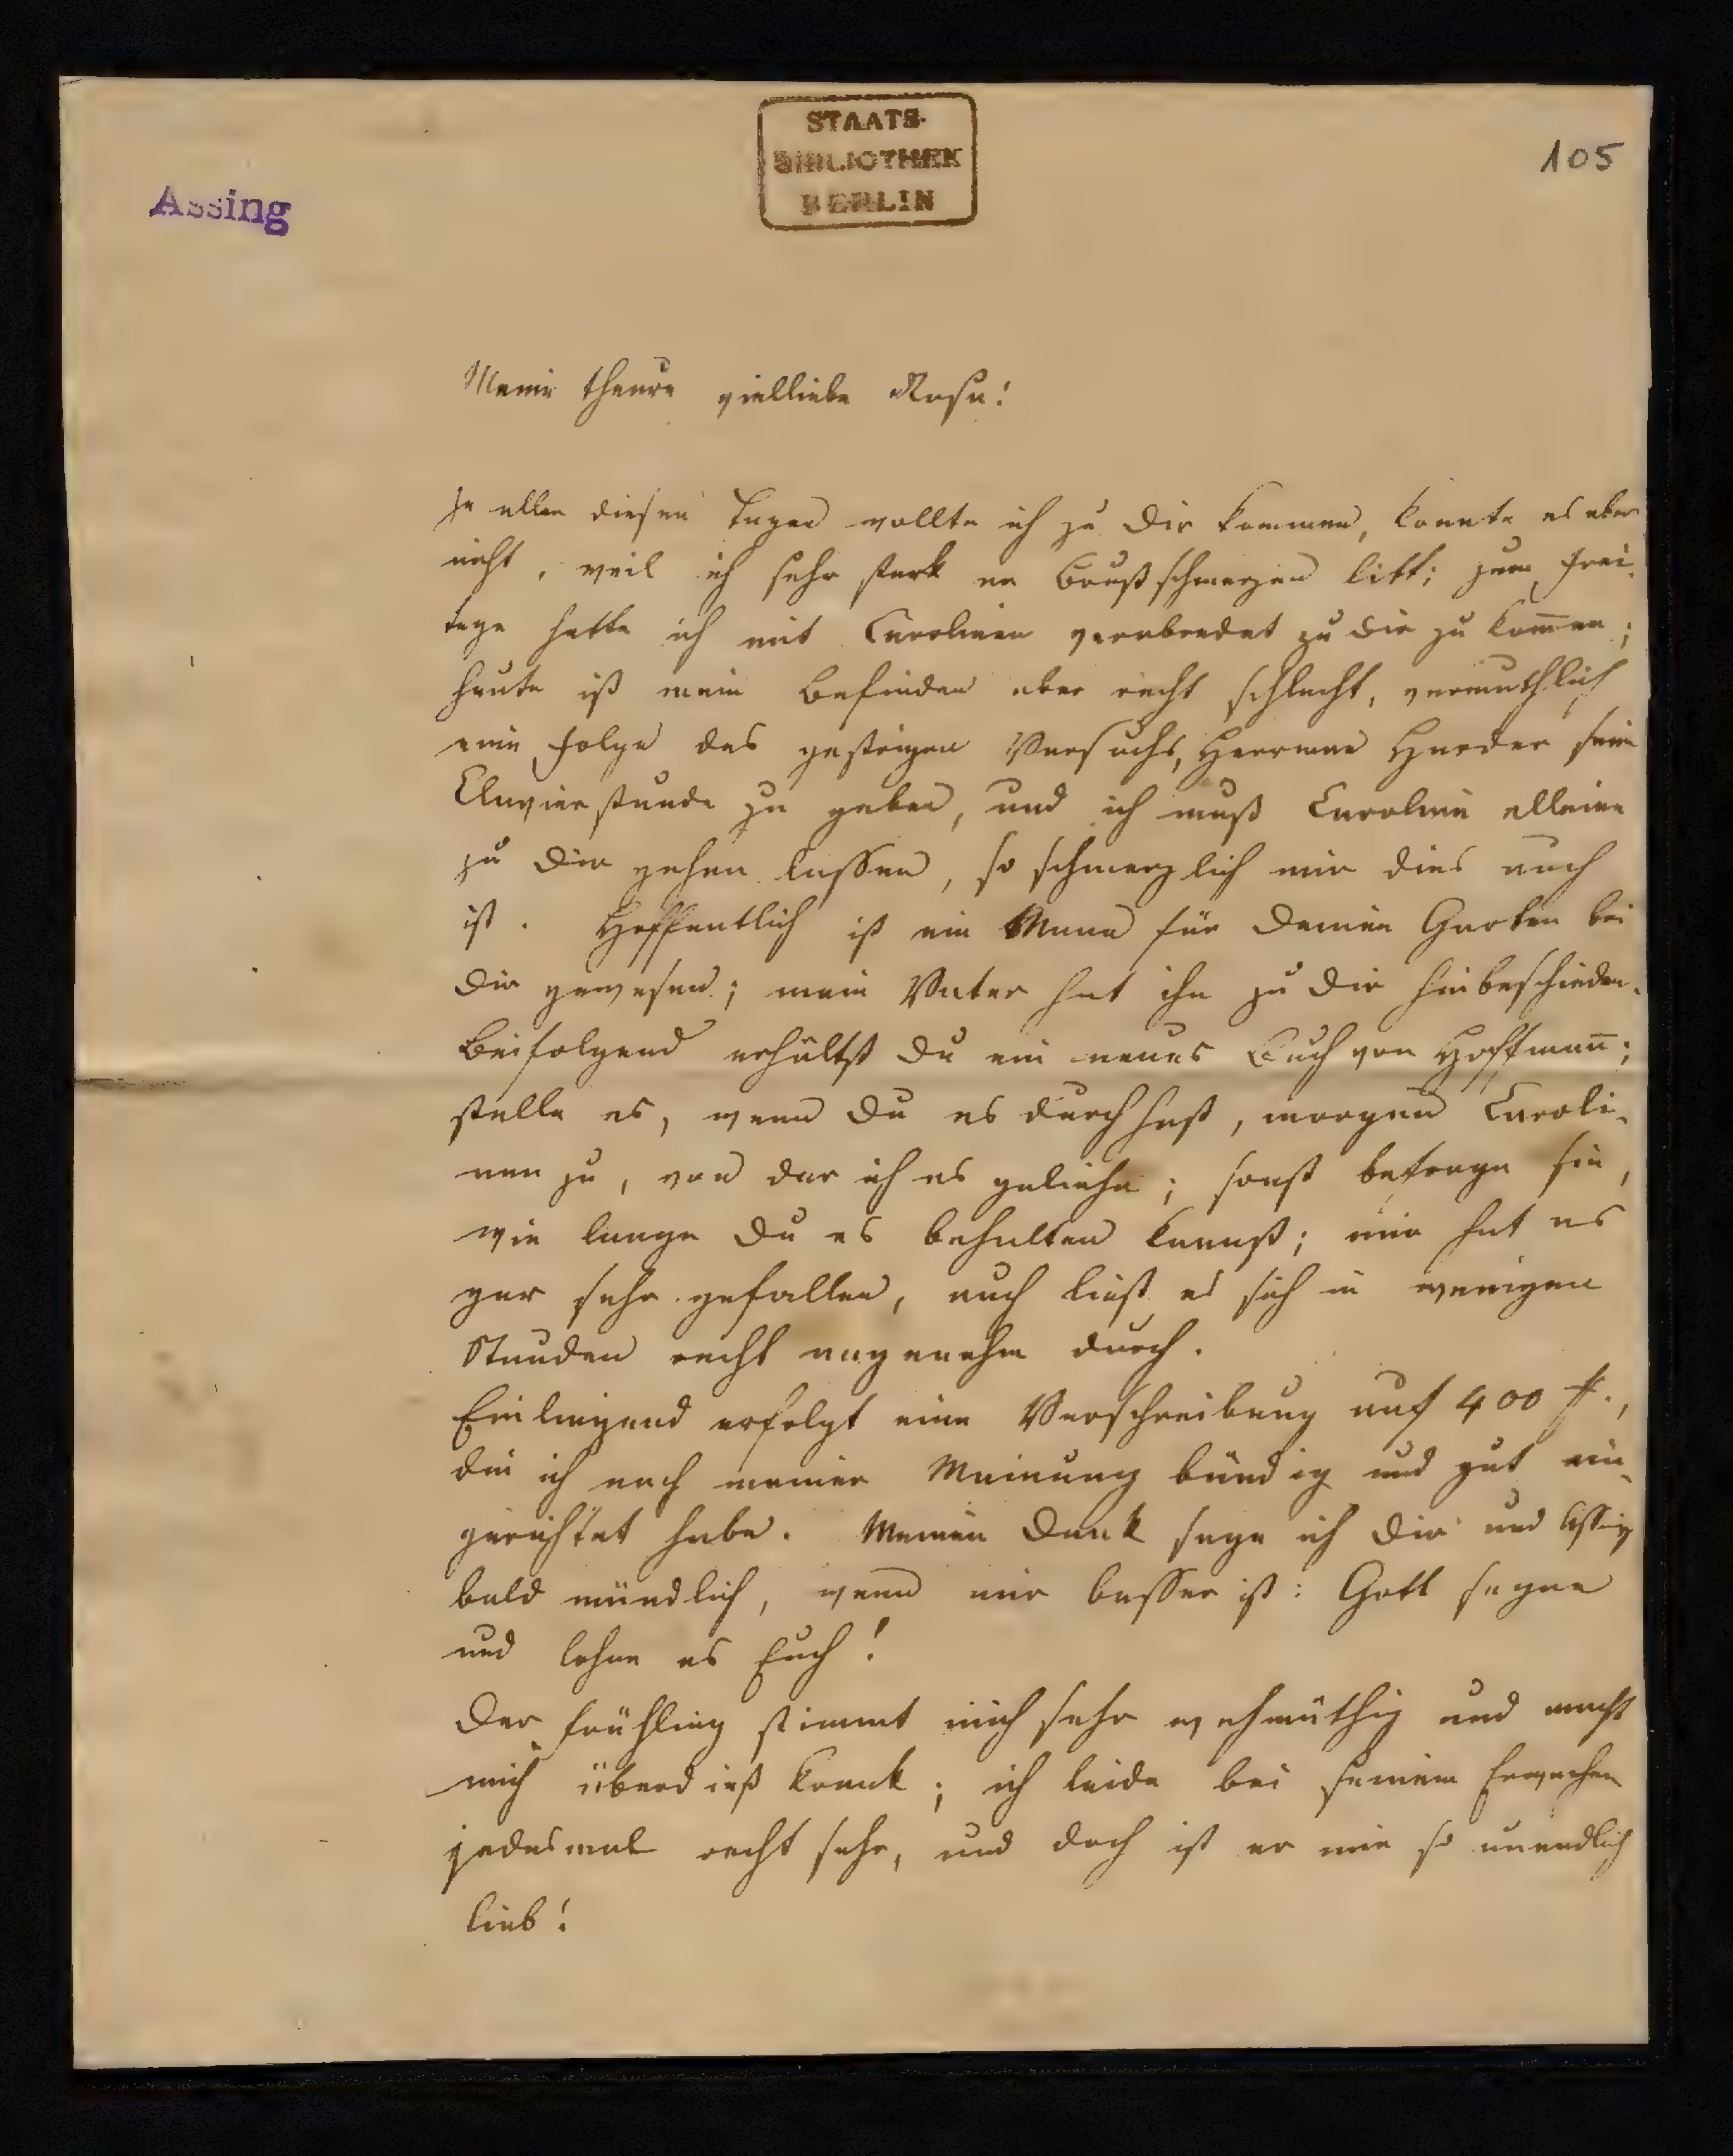 STAATS-
BIBLIOTHEK
BERLIN
105
Assing
Meine theure vielliebe Rosa!
In allen diesen Tagen wollte ich zu Dir kommen, konnte es aber
nicht, weil ich sehr stark an Brustschmerzen litt; zum Frei-
tage hatte ich mit Carolinen verabredet zu Dir zu kom̅en;
heute ist mein Befinden aber recht schlecht, vermuthlich
eine Folge des gestrigen Versuchs, Herrman Harder seine
Clavierstunde zu geben, und ich muß Caroline alleine
zu Dir gehen lassen, so schmerzlich mir dies auch
ist. Hoffentlich ist ein Mann für Deinen Garten bei
Dir gewesen; mein Vater hat ihn zu Dir hinbeschieden.
Beifolgend erhältst Du ein neues Buch von Hoffman̅;
stelle es, wenn Du es durch hast, morgen Caroli-
nen zu, von der ich es geliehn; sonst befrage sie,
wie lange Du es behalten kannst; mir hat es
gar sehr gefallen, auch liest es sich in wenigen
Stunden recht angenehm durch.
Einliegend erfolgt eine Verschreibung auf 400
die ich nach meiner Meinung bündig und gut ein-
gerichtet habe. Meinen Dank sage ich Dir und Assing
bald mündlich, wenn mir besser ist: Gott segne
und lohne es Euch!
Der Frühling stimmt mich sehr wehmüthig und macht
mich überdieß krank; ich leide bei seinem Erwachen
jedesmal recht sehr, und doch ist er mir so unendlich
lieb!